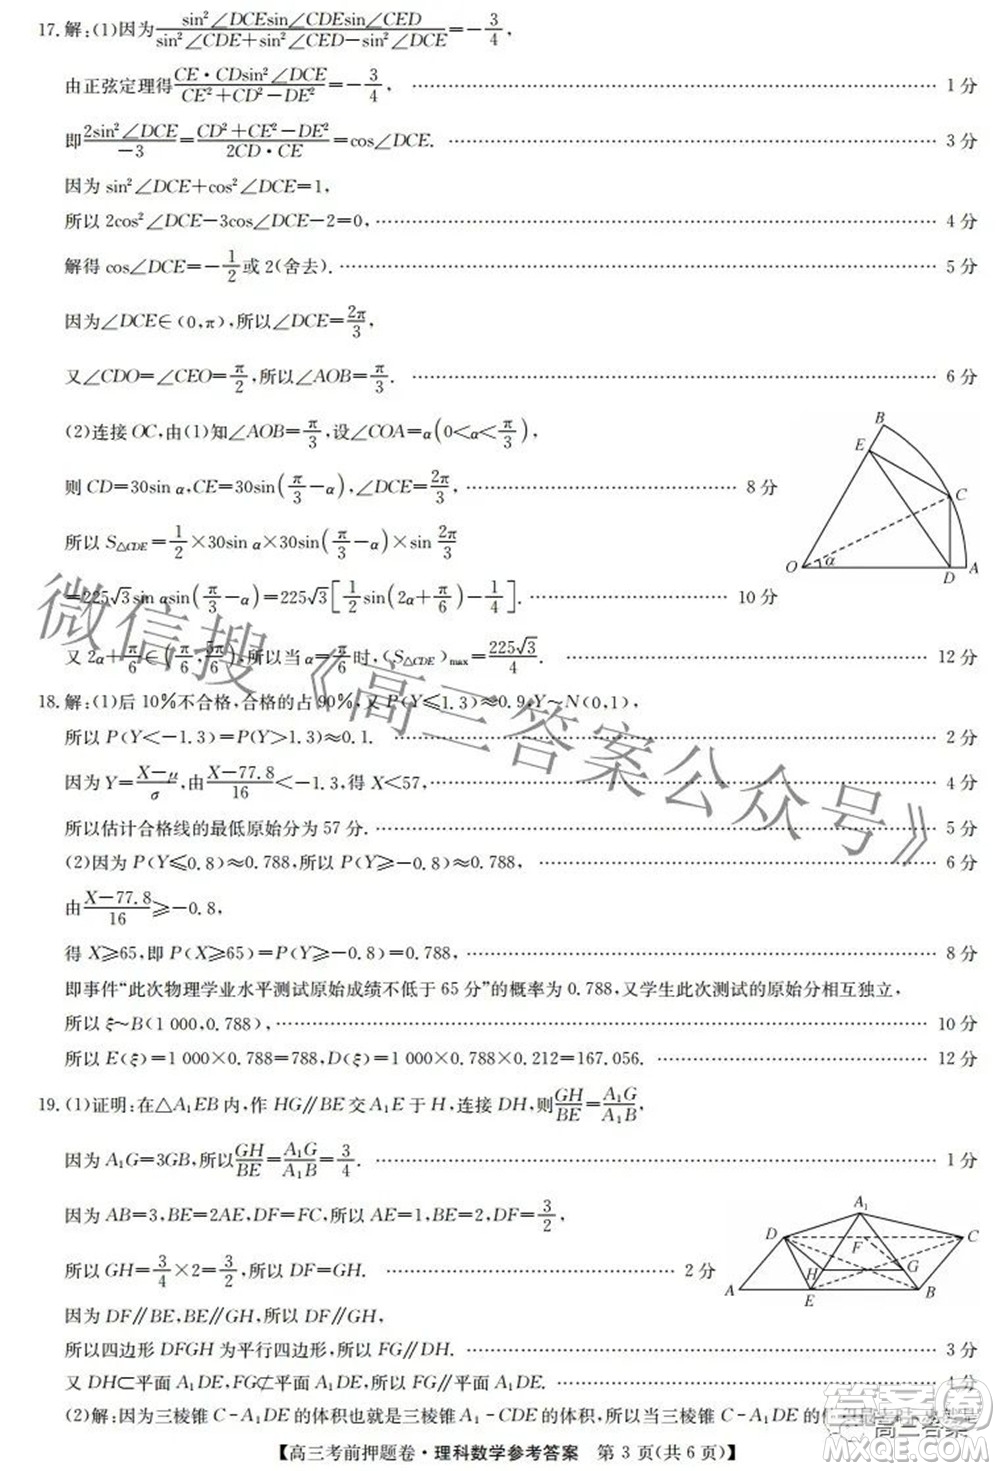 17.解:(1)因为\frac{sin²∠DCEsin∠CDEsin∠CED}{sin²∠CDE+sin²∠CED−sin²∠DCE}=−\frac{3}{4},
由正弦定理得\frac{CE·CDsin²∠DCE}{CE²+CD²−DE²}=−\frac{3}{4}, …… 1分
即\frac{2sin²∠DCE}{−3}=\frac{CD²+CE²−DE²}{2CD·CE}=cos∠DCE. …… 3分
因为 sin²∠DCE+cos²∠DCE=1,
所以 2cos²∠DCE−3cos∠DCE−2=0, …… 4分
解得 cos∠DCE=−\frac{1}{2}或2(舍去). …… 5分
因为∠DCE∈(0,π),所以∠DCE=\frac{2π}{3},
又∠CDO=∠CEO=\frac{π}{2},所以∠AOB=\frac{π}{3}. …… 6分
(2)连接 OC,由(1)知∠AOB=\frac{π}{3},设∠COA=α(0<α<\frac{π}{3}),
则 CD=30sin α,CE=30sin(\frac{π}{3}−α),∠DCE=\frac{2π}{3}, …… 8分
所以 S△CDE=\frac{1}{2}×30sin α×30sin(\frac{π}{3}−α)×sin\frac{2π}{3}
=225√3sin αsin(\frac{π}{3}−α)=225√3[\frac{1}{2}sin(2α+\frac{π}{6})−\frac{1}{4}]. …… 10分
又 2α+\frac{π}{6}∈(\frac{π}{6},\frac{5π}{6}),所以当 α=\frac{π}{6}时,(S△CDE)max=\frac{225√3}{4}. …… 12分
B
E
C
O
α
D
A
18.解:(1)后 10%不合格,合格的占 90%,又 P(Y≤1.3)≈0.9,Y~N(0,1),
所以 P(Y<−1.3)=P(Y>1.3)≈0.1. …… 2分
因为 Y=\frac{X−μ}{σ},由\frac{X−77.8}{16}<−1.3,得 X<57, …… 4分
所以估计合格线的最低原始分为 57 分. …… 5分
(2)因为 P(Y≤0.8)≈0.788,所以 P(Y≥−0.8)≈0.788, …… 6分
由\frac{X−77.8}{16}≥−0.8,
得 X≥65,即 P(X≥65)=P(Y≥−0.8)=0.788, …… 8分
即事件“此次物理学业水平测试原始成绩不低于 65 分”的概率为 0.788,又学生此次测试的原始分相互独立,
所以 ξ~B(1 000,0.788), …… 10分
所以 E(ξ)=1 000×0.788=788,D(ξ)=1 000×0.788×0.212=167.056. …… 12分
19.(1)证明:在△A₁EB 内,作 HG∥BE 交 A₁E 于 H,连接 DH,则\frac{GH}{BE}=\frac{A₁G}{A₁B},
因为 A₁G=3GB,所以\frac{GH}{BE}=\frac{A₁G}{A₁B}=\frac{3}{4}. …… 1分
因为 AB=3,BE=2AE,DF=FC,所以 AE=1,BE=2,DF=\frac{3}{2},
所以 GH=\frac{3}{4}×2=\frac{3}{2},所以 DF=GH. …… 2分
因为 DF∥BE,BE∥GH,所以 DF∥GH,
所以四边形 DFGH 为平行四边形,所以 FG∥DH. …… 3分
又 DH⊂平面 A₁DE,FG⊄平面 A₁DE,所以 FG∥平面 A₁DE. …… 4分
A₁
D
F
C
H
G
A
E
B
(2)解:因为三棱锥 C−A₁DE 的体积也就是三棱锥 A₁−CDE 的体积,所以当三棱锥 C−A₁DE 的
【高三考前押题卷·理科数学参考答案 第 3 页(共 6 页)】
微信搜《高三答案公众号》
高三答案